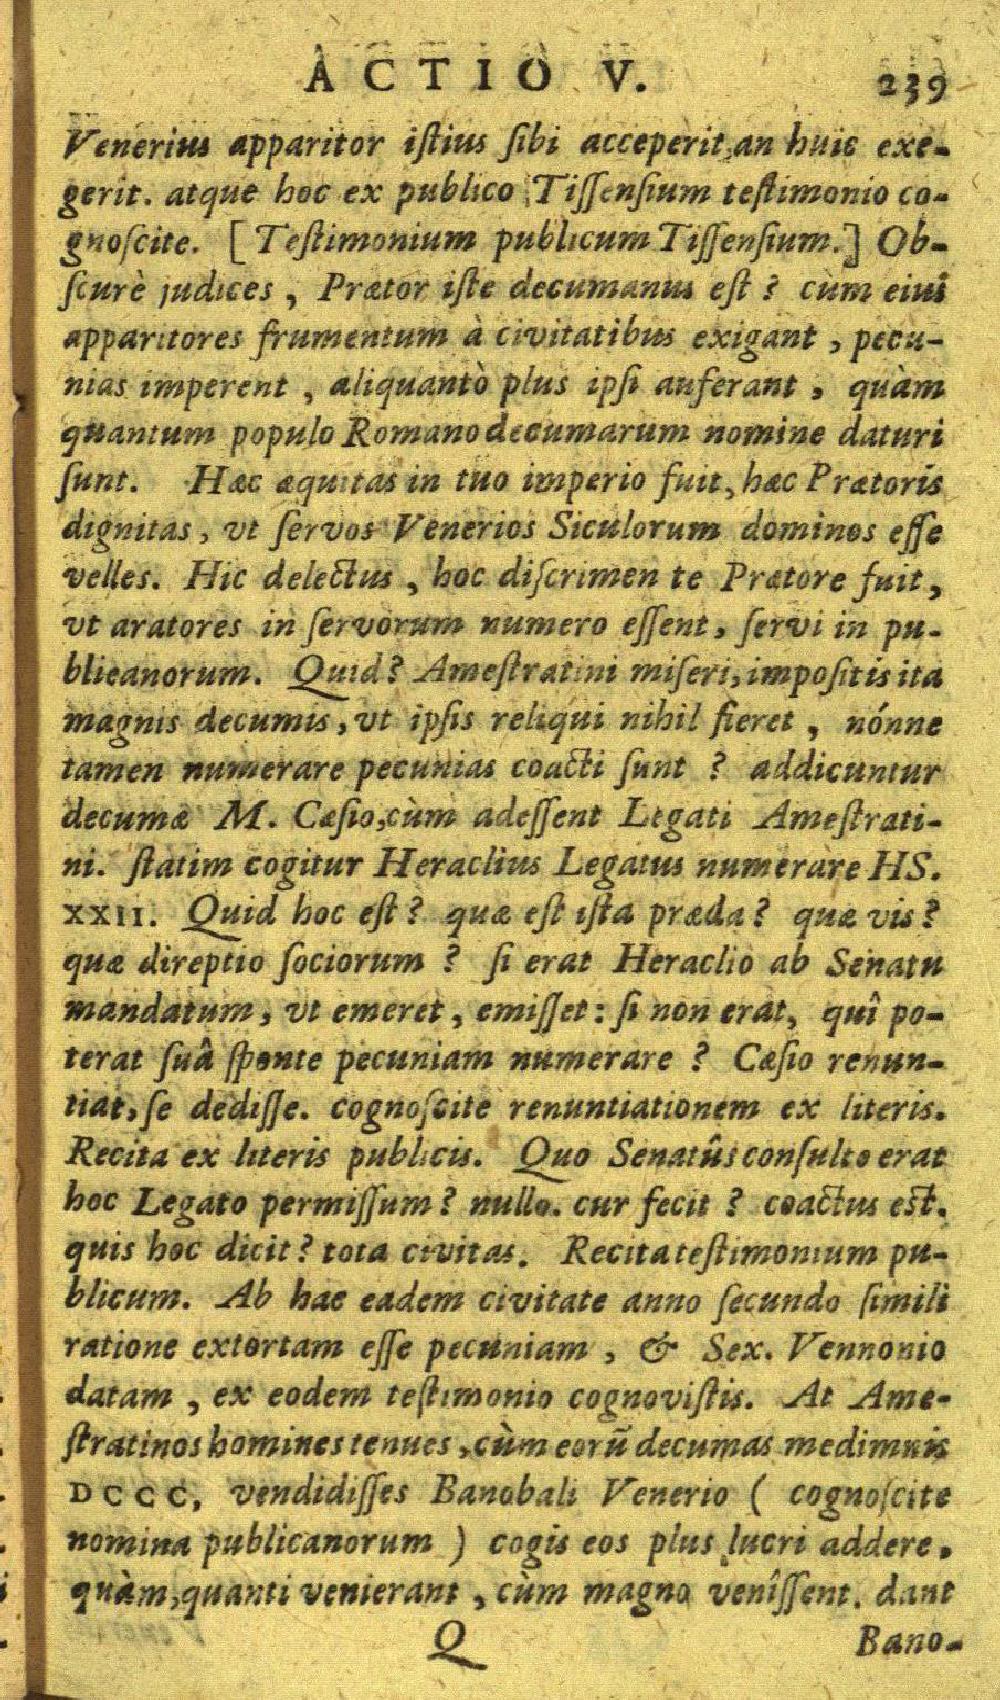 ACTIO V. 239
Venerius apparitor iſtius ſibi acceperit, an huic exe-
gerit. atque hoc ex publico Tiſſenſium teſtimonio co-
gnoſcite. [Teſtimonium publicum Tiſſenſium.] Ob-
ſcurè judices, Prætor iſte decumanus eſt? cùm eius
apparitores frumentum à civitatibus exigant, pecu-
nias imperent, aliquantò plus ipſi auferant, quàm
quantum populo Romano decumarum nomine daturi
ſunt. Hæc æquitas in tuo imperio fuit, hæc Prætoris
dignitas, vt ſervos Venerios Siculorum dominos eſſe
velles. Hic delectus, hoc diſcrimen te Prætore fuit,
vt aratores in ſervorum numero eſſent, ſervi in pu-
blicanorum. Quid? Ameſtratini miſeri, impoſitis ita
magnis decumis, vt ipſis reliqui nihil fieret, nónne
tamen numerare pecunias coacti ſunt? addicuntur
decumæ M. Cæſio, cùm adeſſent Legati Ameſtrati-
ni. ſtatim cogitur Heraclius Legatus numerare HS.
XXII. Quid hoc eſt? quæ eſt iſta præda? quæ vis?
quæ direptio ſociorum? ſi erat Heraclio ab Senatu
mandatum, vt emeret, emiſſet: ſi non erat, quî po-
terat ſuâ ſponte pecuniam numerare? Cæſio renun-
tiat, ſe dediſſe. cognoſcite renuntiationem ex literis.
Recita ex literis publicis. Quo Senatûs conſulto erat
hoc Legato permiſſum? nullo. cur fecit? coactus eſt.
quis hoc dicit? tota civitas. Recita teſtimonium pu-
blicum. Ab hac eadem civitate anno ſecundo ſimili
ratione extortam eſſe pecuniam, & Sex. Vennonio
datam, ex eodem teſtimonio cognoviſtis. At Ame-
ſtratinos homines tenues, cùm eorũ decumas medimnis
DCCC, vendidiſſes Banobali Venerio (cognoſcite
nomina publicanorum) cogis eos plus lucri addere,
quàm, quanti venierant, cùm magno venîſſent. dant
Q Bano-